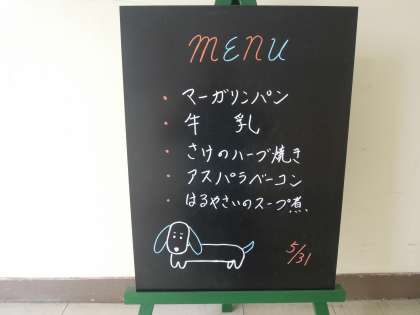 MENU
・マーガリンパン
・牛 乳
・さけのハーブ焼き
・アスパラベーコン
・はるやさいのスープ煮
5/31